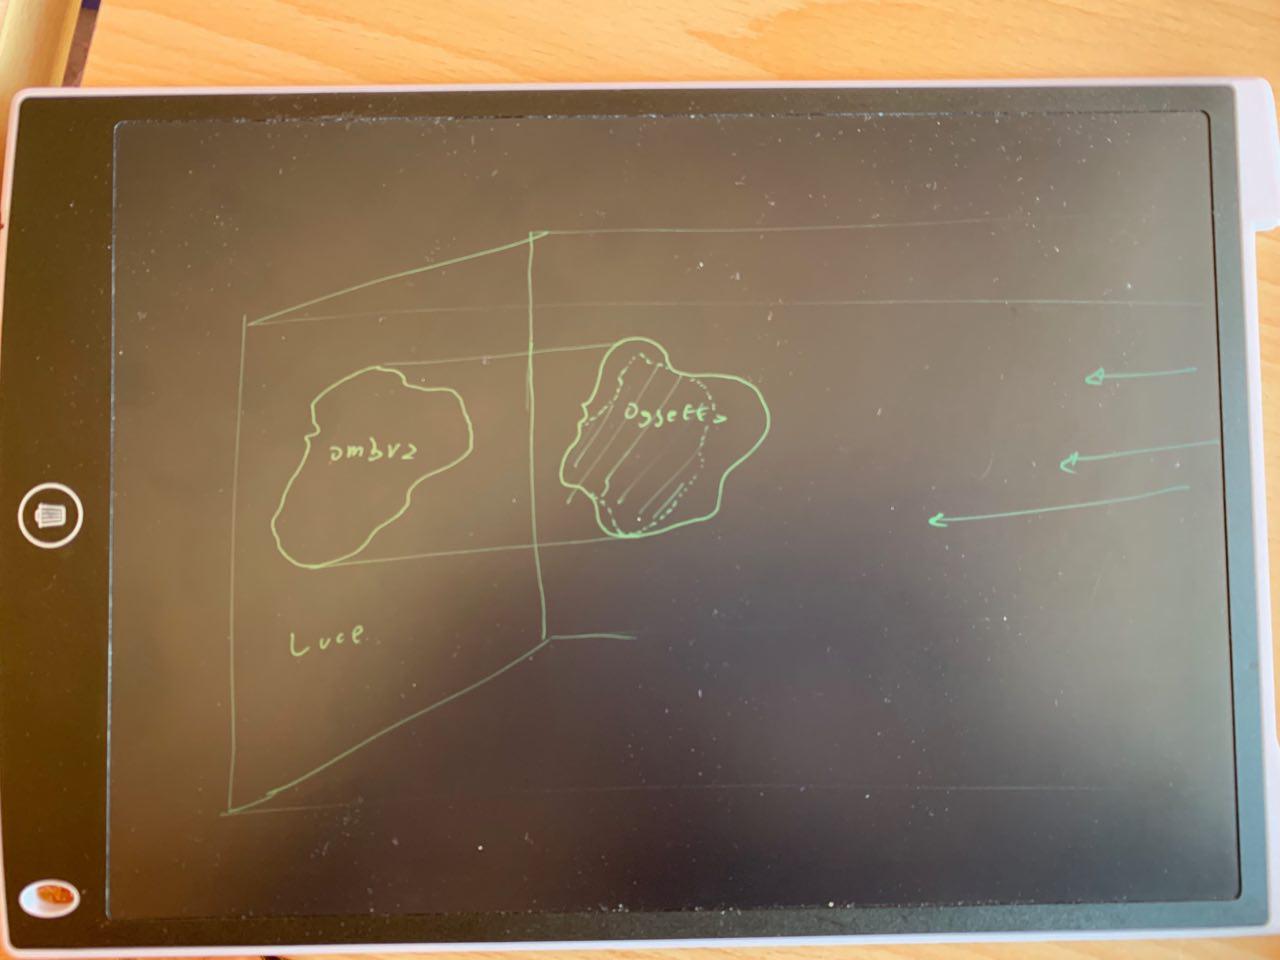 ombra
oggetto
Luce